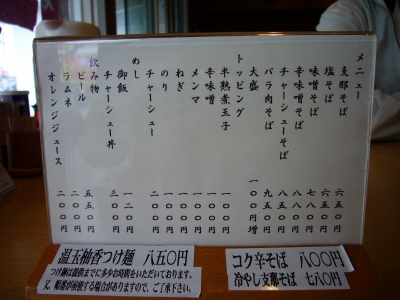 メニュー
支那そば 六五〇円
塩そば 六五〇円
味噌そば 七八〇円
辛味噌そば 八五〇円
チャーシューそば 八五〇円
バラ肉そば 九五〇円
大盛 一〇〇円増
トッピング
半熟煮玉子 一〇〇円
辛味噌 一〇〇円
メンマ 一〇〇円
ねぎ 一〇〇円
のり 一〇〇円
チャーシュー 二〇〇円
めし
御飯 一二〇円
チャーシュー丼 三〇〇円
飲み物
ビール 五五〇円
ラムネ 二〇〇円
オレンジジュース 二〇〇円
温玉柚香つけ麺 八五〇円
つけ麺は提供までに多少お時間をいただいております。
又、順番が前後する場合がありますので、ご了承下さい。
コク辛そば 八〇〇円
冷やし支那そば 七八〇円